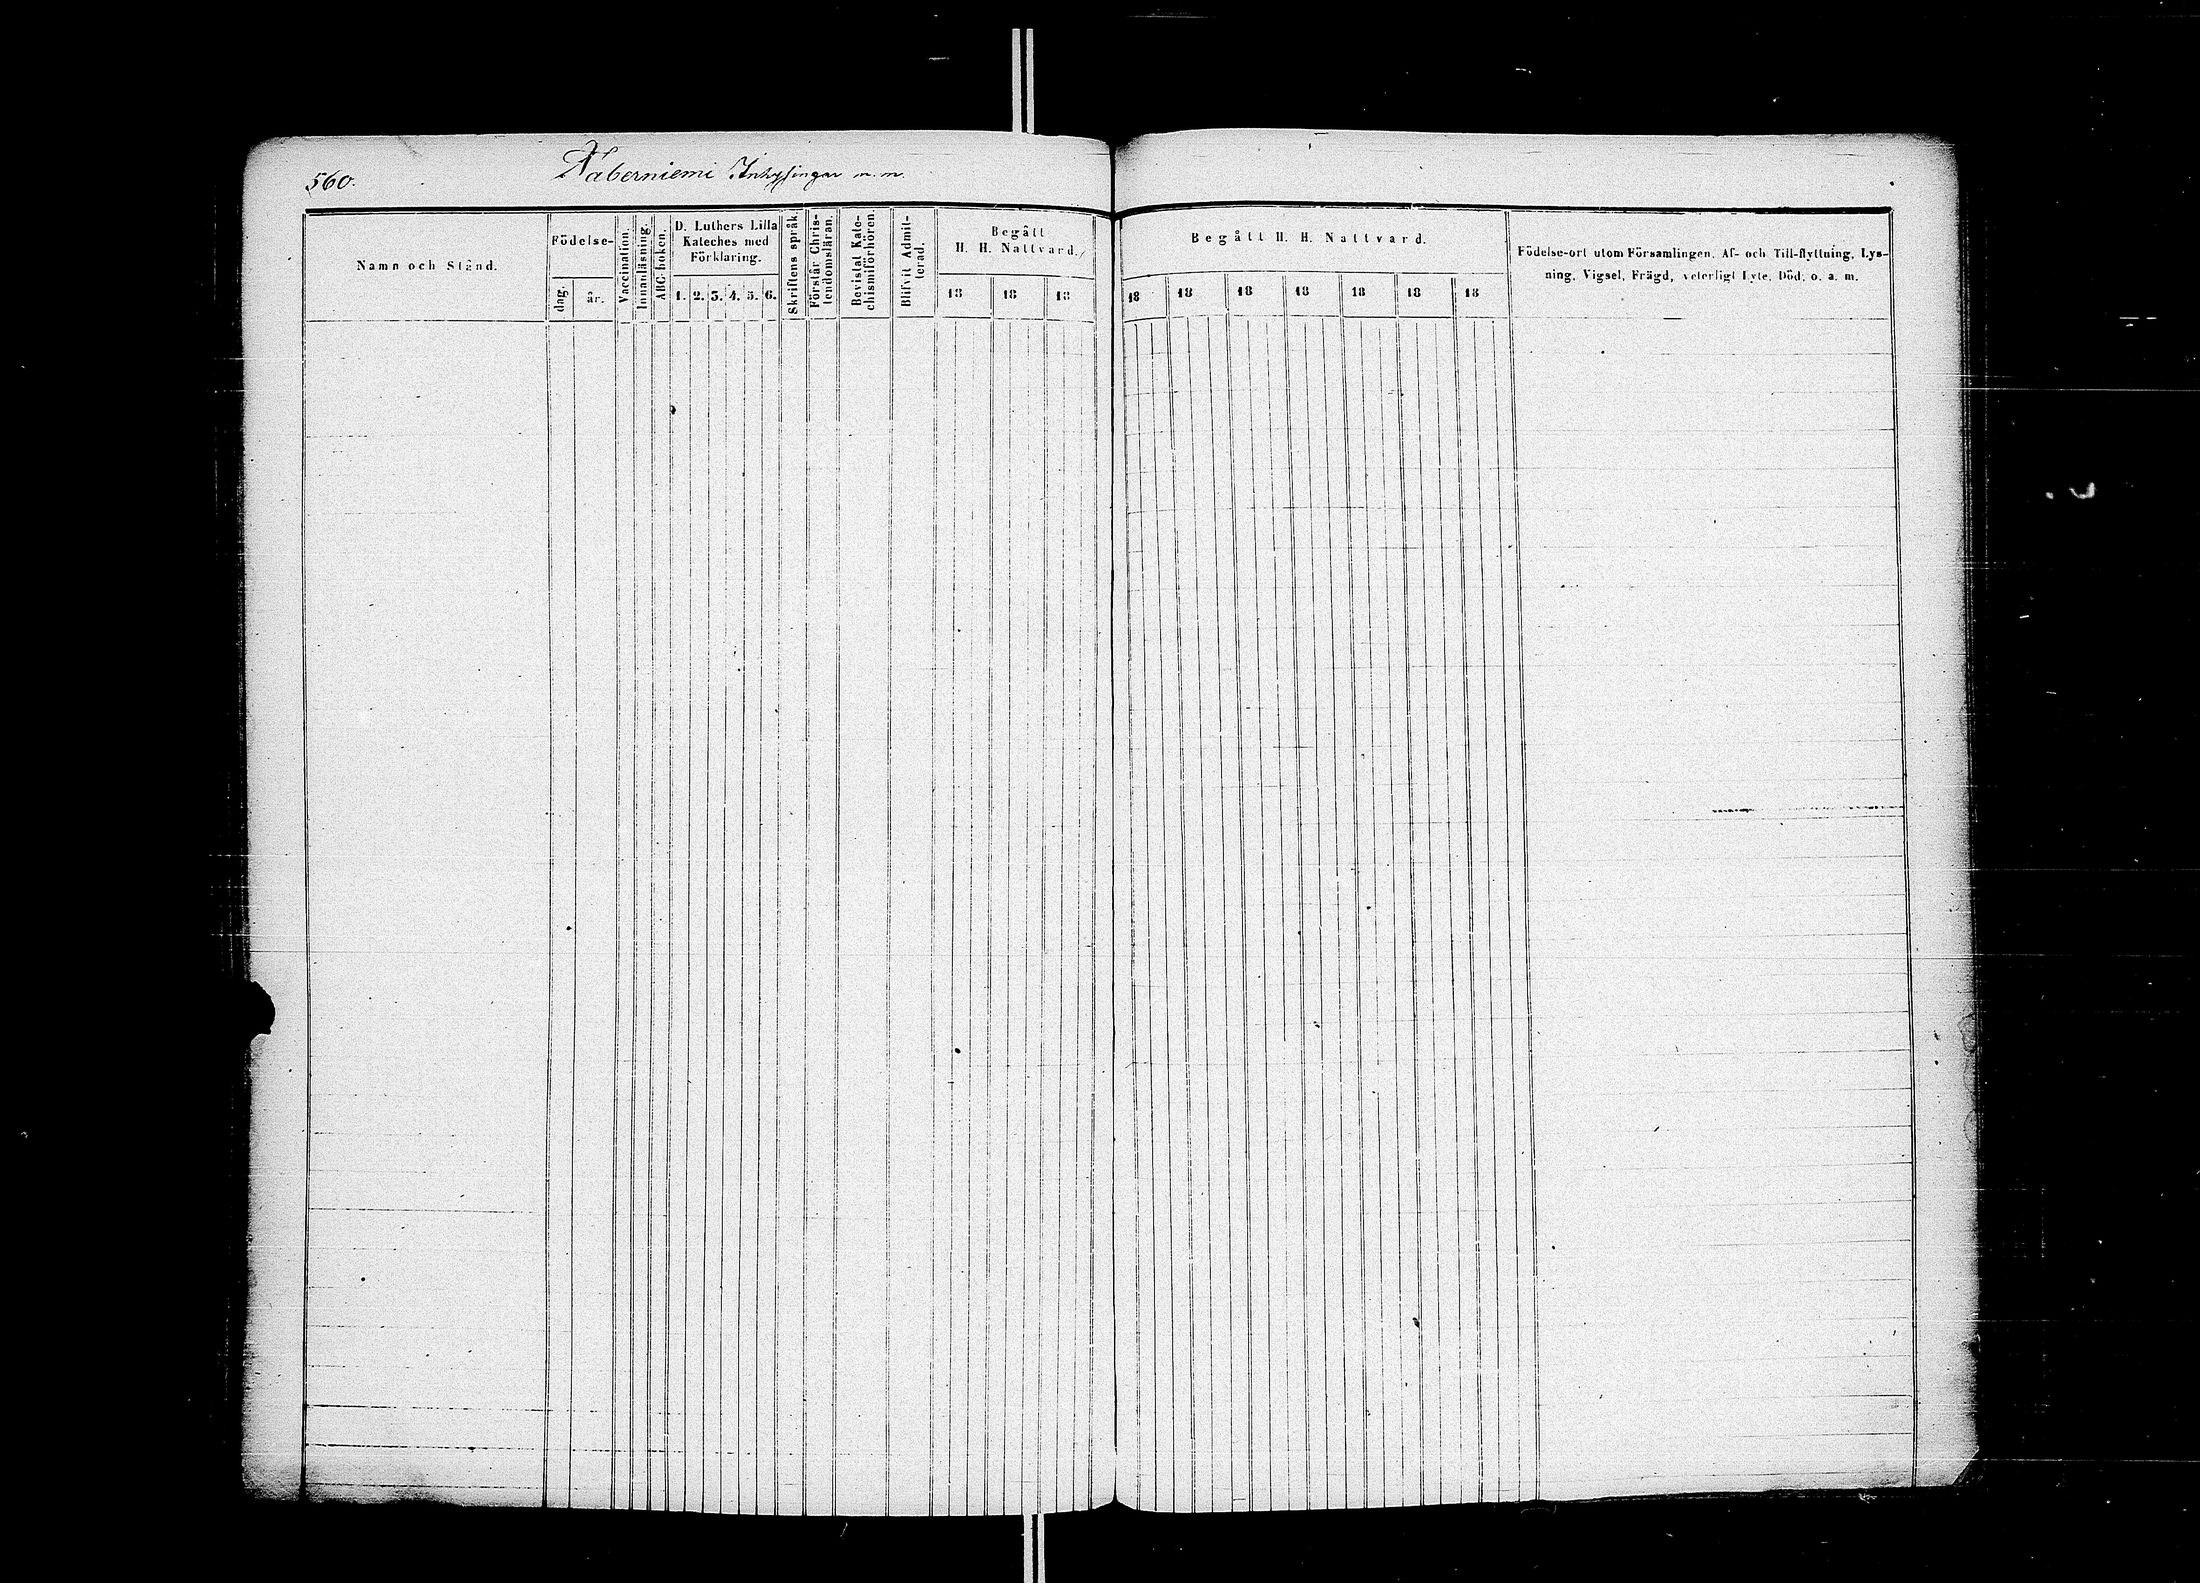 560.
Naberniemi Inhysingar m.m.
Namn och Stånd.
Födelse-
dag.
år.
Vaccination.
Innanläsning.
ABC-boken.
D. Luthers Lilla
Kateches med
Förklaring.
1. 2. 3. 4. 5. 6.
Skriftens språk.
Förstår Chris-
tendomsläran.
Bevistat Kate-
chismiförhören.
Blifvit Admit-
terad.
Begått
H. H. Nattvard.
18 18 18
Begått H. H. Nattvard.
18 18 18 18 18 18 18
Födelse-ort utom Församlingen, Af- och Till-flyttning, Lys-
ning, Vigsel, Frägd, veterligt Lyte, Död, o. a. m.